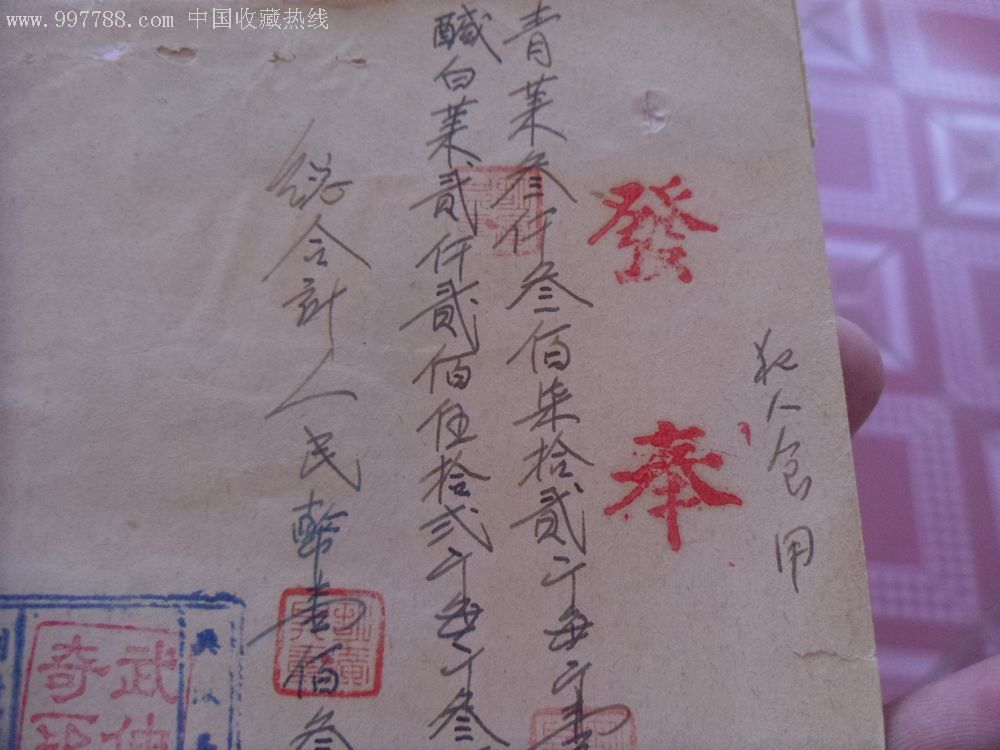 www.997788.com 中国收藏热线
犯人食用
發奉
青菜叁仟叁佰柒拾贰斤每斤壹
鹹白菜贰仟贰佰伍拾弍斤每斤叁
総合計人民幣壹佰叁
武
奇